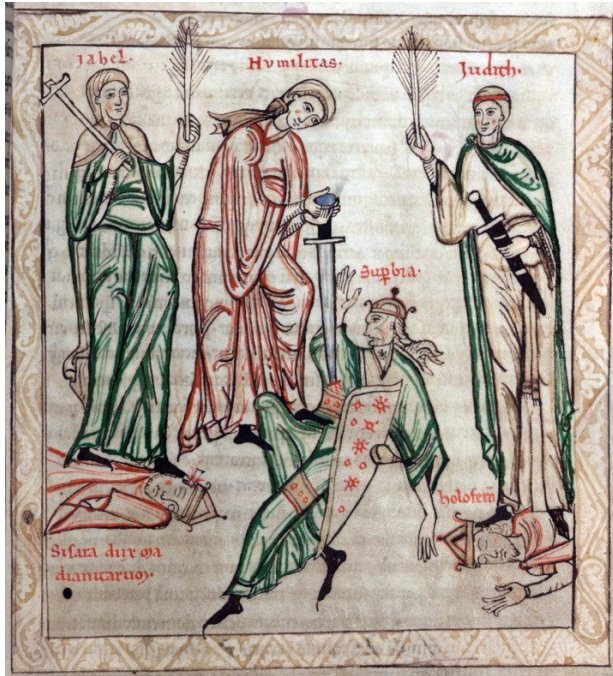 Jahel.
Humilitas.
Judith.
Supbia.
holofern
Sisara dux ma
dianitarum.